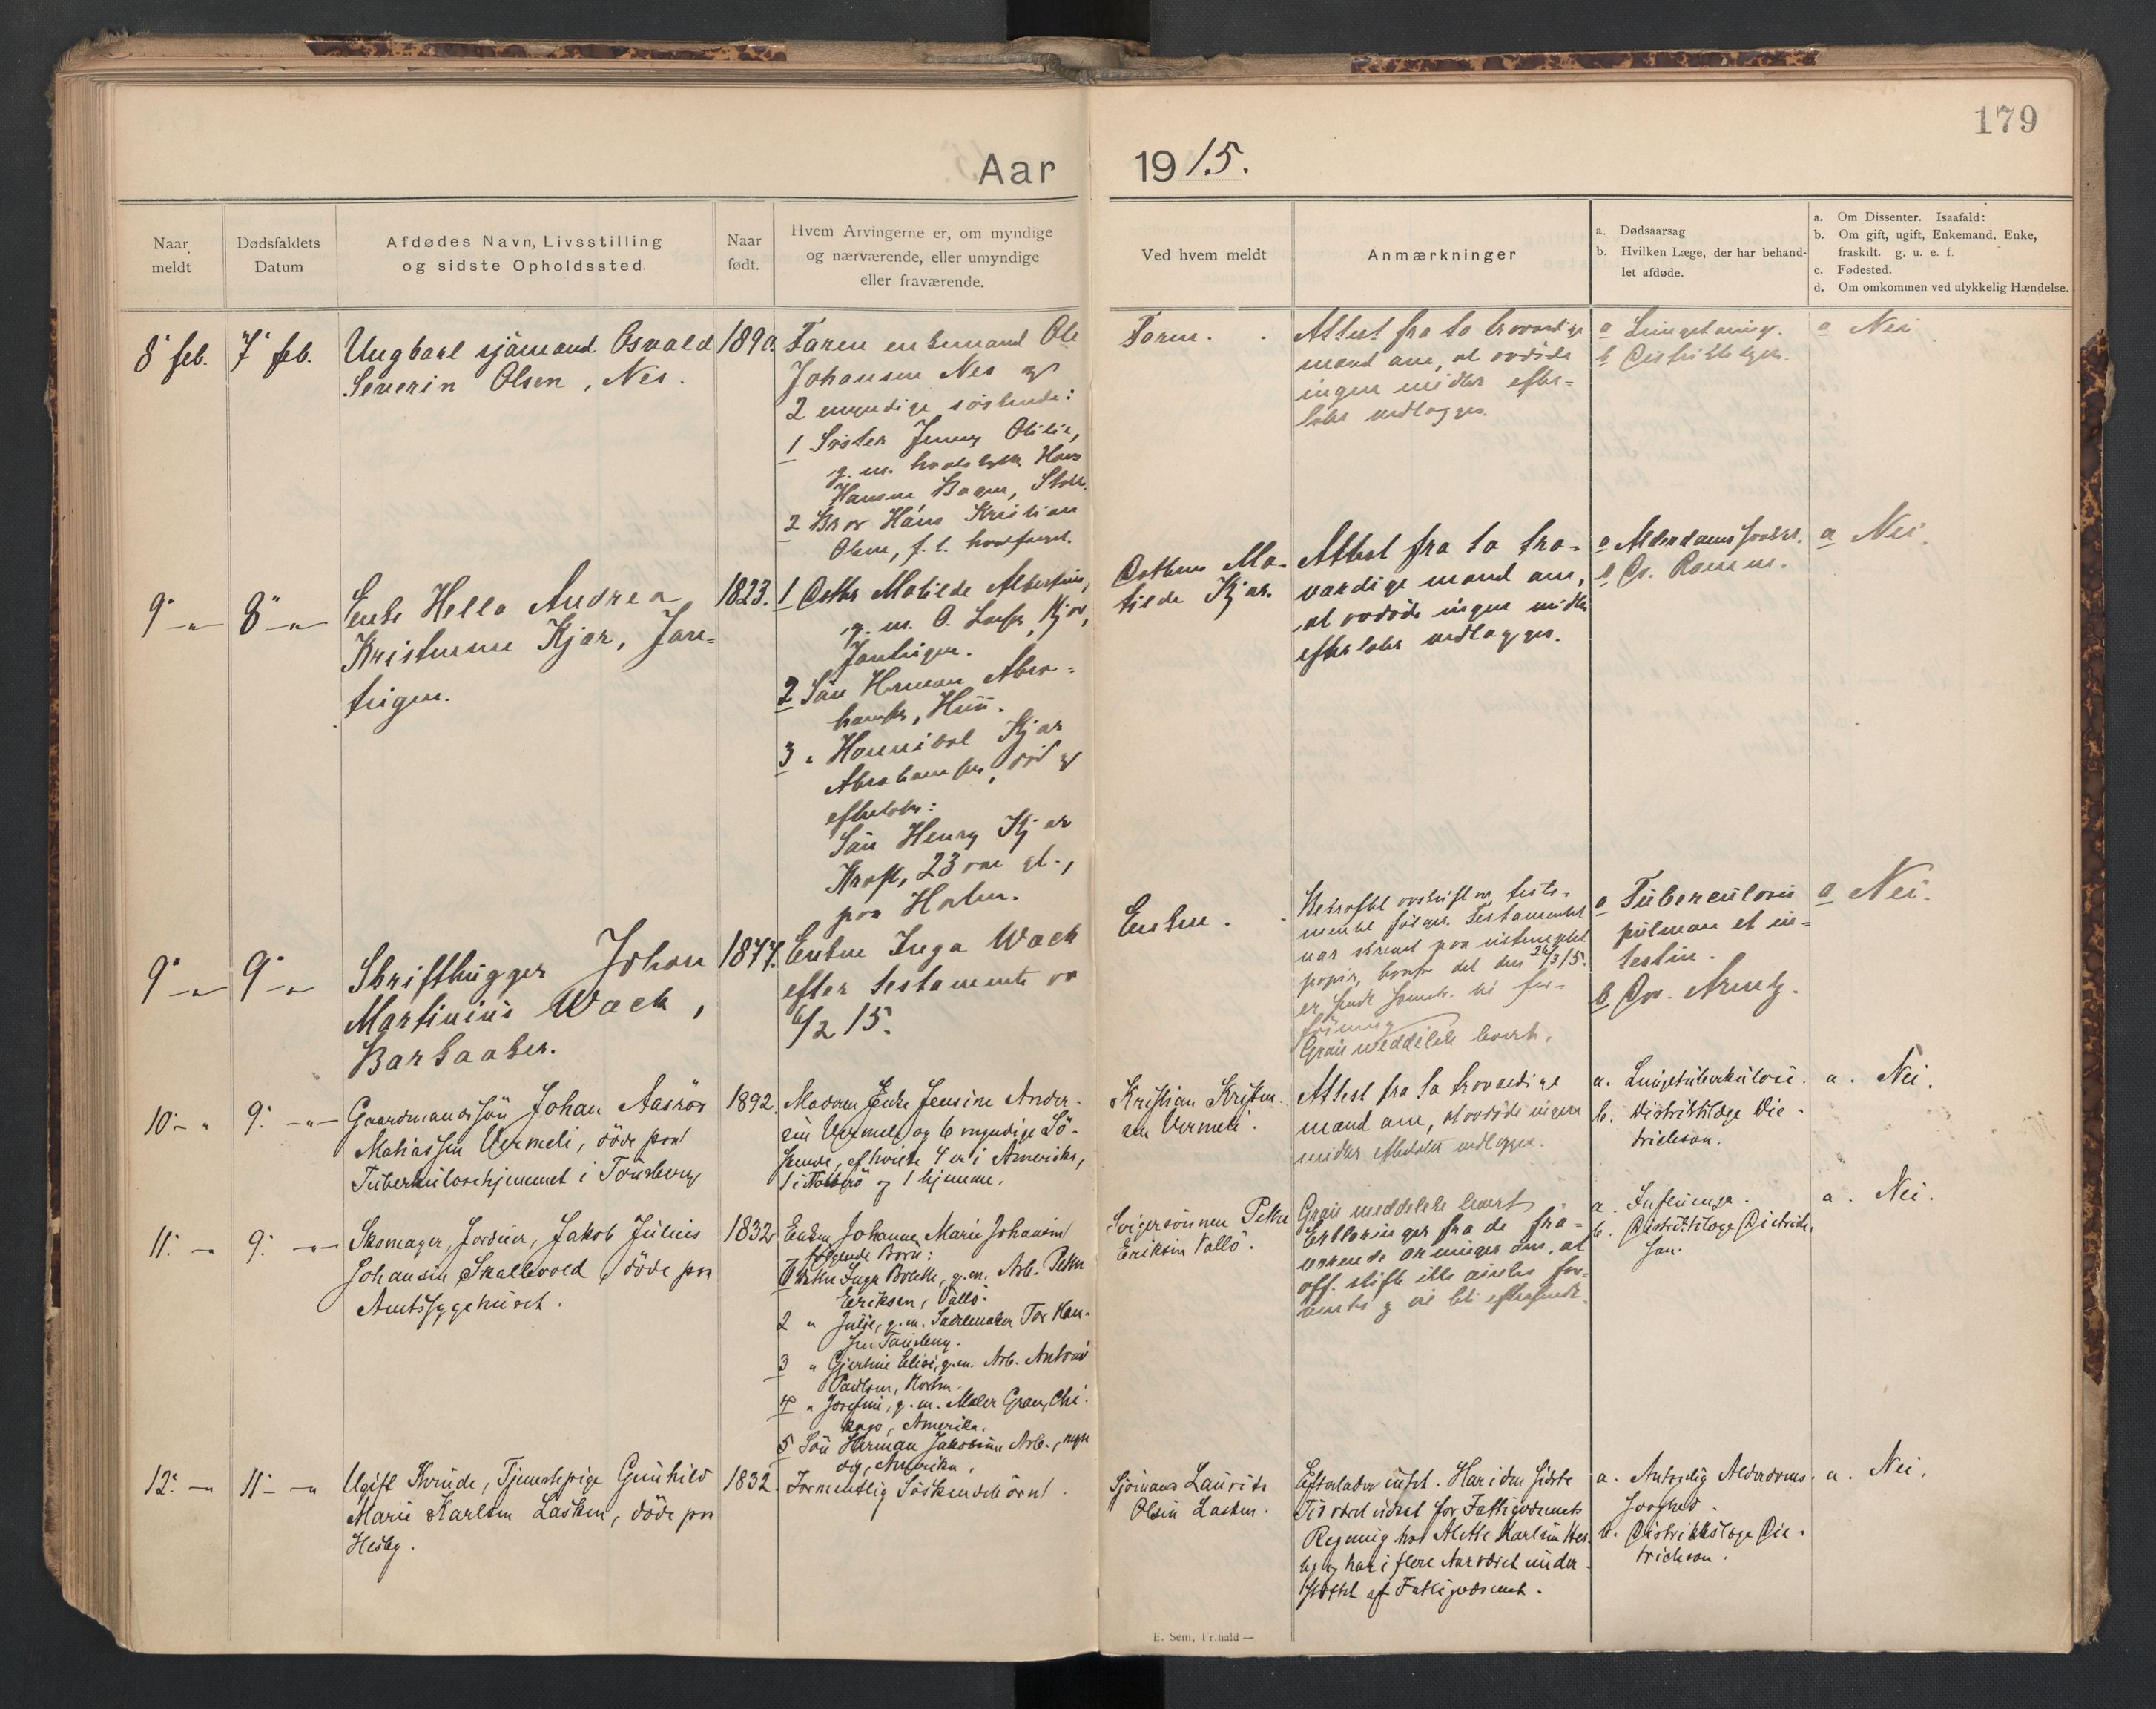 179
Aar 1915.
Naar meldt
Dødsfaldets Datum
Afdødes Navn, Livsstilling og sidste Opholdssted.
Naar født.
Hvem Arvingerne er, om myndige og nærværende, eller umyndige eller fraværende.
Ved hvem meldt
Anmærkninger
a. Dødsaarsag
b. Hvilken Læge, der har behandlet afdøde.
a. Om Dissenter. Isaafald:
b. Om gift, ugift, Enkemand, Enke, fraskilt. g. u. e. f.
c. Fødested.
d. Om omkommen ved ulykkelig Hændelse.
8' feb. 7' feb.
Ungkarl sjømand Osvald
Severin Olsen, Nes.
1890.
Faren enkemand Ole
Johansen Nes og
2 myndige søskende:
1 Søster Jenny Otilie,
g. m. Hans
Hansen Bogen,
2 Bror Hans Kristian
Olsen, f. t.
Faren.
Attest fra to troværdige
mænd om, at avdøde
ingen midler efter-
later vedlægges.
a
b Distriktslægen.
a Nei
9" — 8" —
Enke Hella Andrea
Kristense Kjær, Jar-
tingen.
1823.
1 Datter Matilde Albertine,
g. m. O. Kjær,
2 Søn Herman Abra-
3 " Hannibal Kjær
død og
efterlater:
Søn Henry Kjær
23 aar gl.,
Datteren Ma-
tilde Kjær.
Attest fra to tro-
værdige mænd om,
at avdøde ingen midler
efterlater vedlægges.
a Alderdomssvakhet.
b Dr. Ramm.
a Nei.
9" — 9" —
Skrifthugger Johan
Martinius Wack,
Barkaaker.
1877.
Enken Inga Wack
efter testamente av
6/2 15.
Enken.
Bekræftet avskrift av testa-
mentet følger. Testamentet
var skrevet paa ustemplet
papir, hvorfor det den 24/3 15.
er sendt
Grau meddelelse levert.
a Tuberculosis
pulmon et in-
testin.
b Dr. Arentz.
a Nei.
10' — 9' —
Gaardmandssøn Johan Aasrør
Matiassen Vermeli, døde paa
Tuberkulosehjemmet i Tønsberg
1892.
Moderen Enke Jensine Ander-
sen Vermeli og 6 myndige Sø-
skende, af hvilke 4 er i Amerika,
1 i og 1 hjemme.
Kristian Kristen-
sen Vermeli.
Attest fra to troværdige
mænd om, at avdøde ingen
midler efterlater vedlægges.
a. Lungetuberkulose.
b. Distriktslæge Die-
trichson.
a. Nei.
11' — 9' —
Skomager, Jordeier, Jakob Julius
Johansen Skallevold, døde paa
Amtssygehuset.
1832
Enken Johanne Marie Johansen
følgende Børn:
1 Datter Inga Bolette, g.m. Arb. Petter
Eriksen, Vallø.
2 " Julie, g.m. Sadelmaker Tor Han-
sen Tønsberg.
3 " Gjertine Elise, g.m. Arb. Anton
Paulsen,
4 " Josefine, g.m. Maler Gran, Chi-
kago, Amerika.
5 Søn Herman Jakobsen Arb., myn-
dig, Amerika.
Svigersønnen Petter
Eriksen Vallø.
Grau meddelelse levert
Erklæringer fra de fra-
værende arvinger om, at
off. skifte ikke ønskes for-
ventes og vil bli eftersendt.
a. Influenza.
b. Distriktslæge Dietrich-
son.
a. Nei.
12' — 11' —
Ugift Kvinde, Tjenestepige Gunhild
Marie Karlsen Lasken, døde paa
Hesby.
1832.
Formentlig Søskendebørn.
Sjømand Laurits
Olsen Lasken.
Efterlader intet. Har i den sidste
Tid været udsat for Fattigvæsenets
Regning hos Alette Karlsen Hes-
by og har i flere Aar været under-
støttet af Fattigvæsenet.
a. Antagelig Alderdoms-
svaghed.
b. Distriktslæge Die-
trichson.
a. Nei.
E. Sem, Fr.hald —